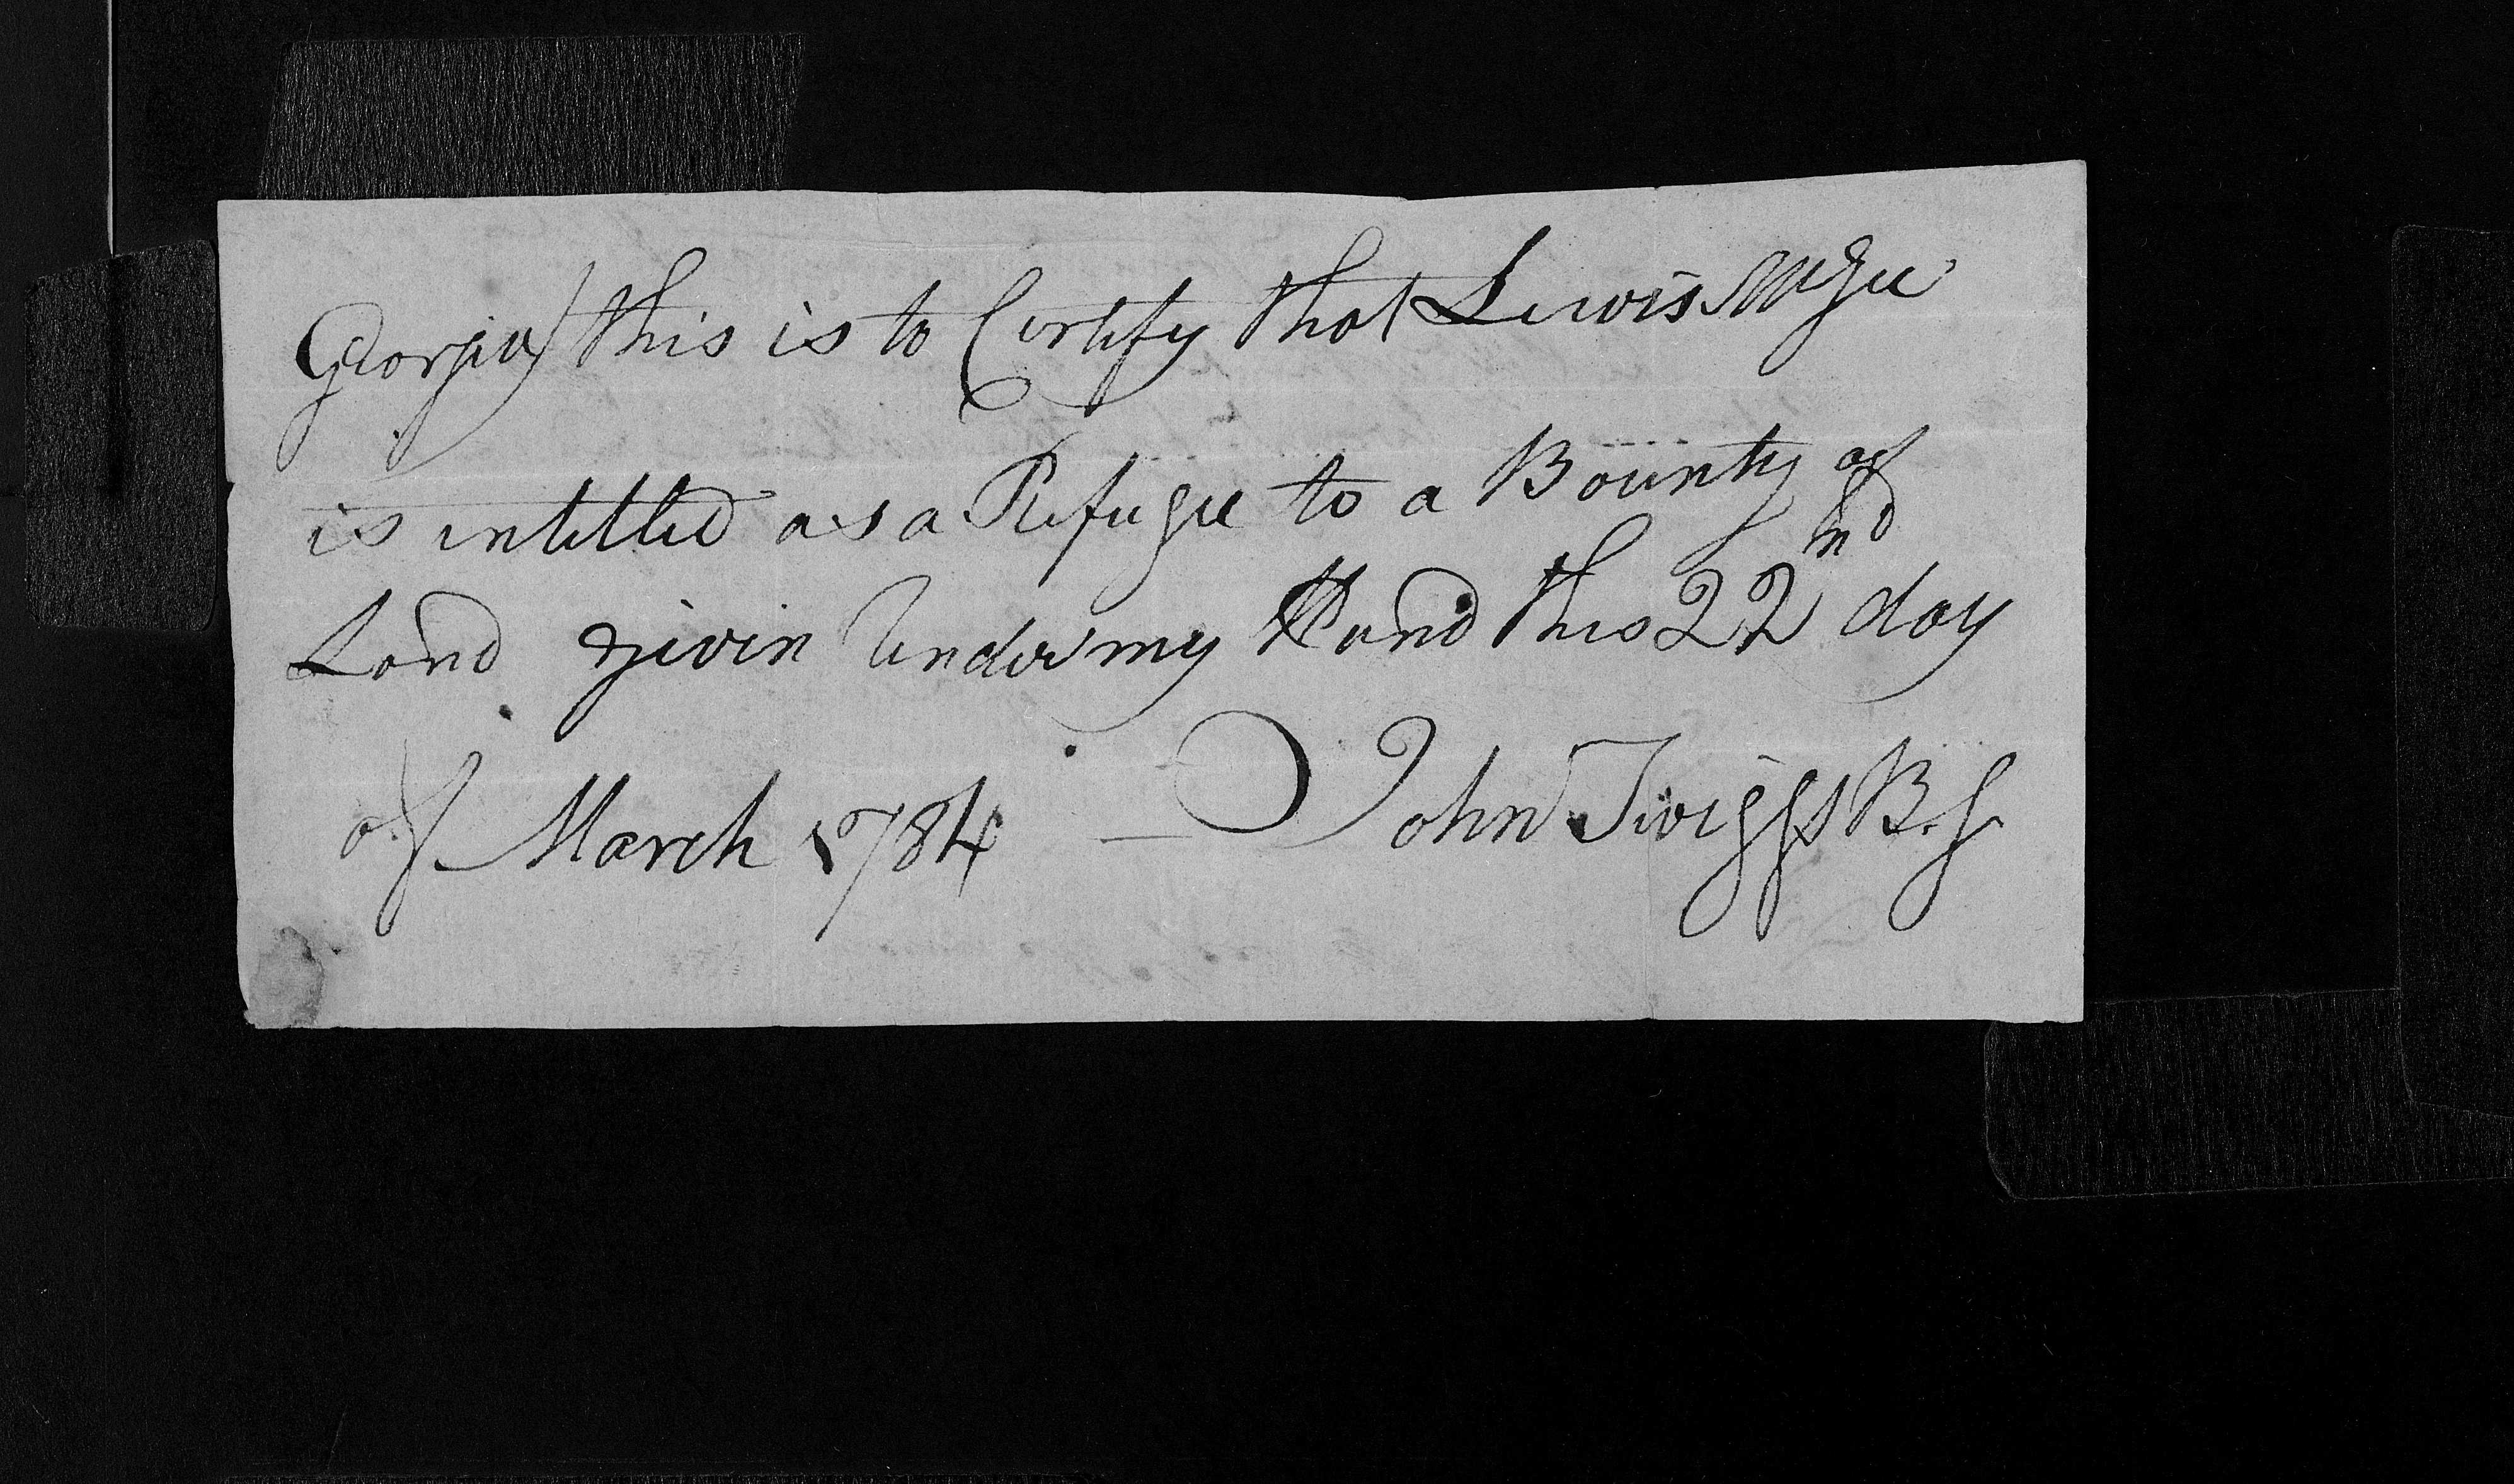 Georgia) this is to Certify that Lewis McGee
is intitled as a Refugee to a Bounty of
Land given Under my Hand this 22nd day
of March 1784 — John Twiggs B.G.